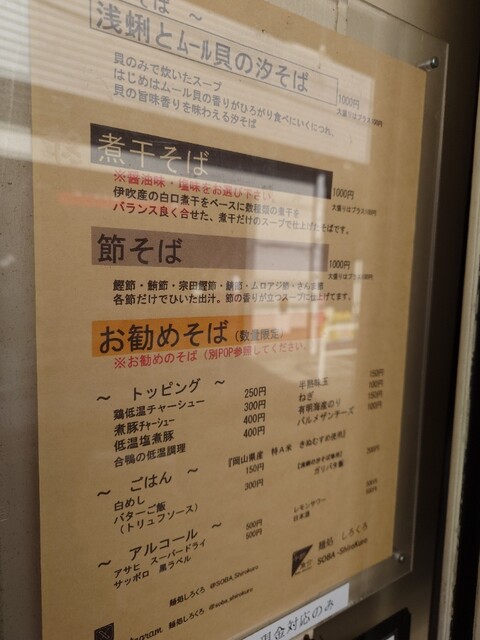 そば ～
浅蜊とムール貝の汐そば
1000円
貝のみで炊いたスープ
はじめはムール貝の香りがひろがり食べにいくにつれ、
貝の旨味香りを味わえる汐そば
煮干そば
1000円
※醤油味・塩味をお選び下さい。
伊吹産の白口煮干をベースに数種類の煮干を
バランス良く合せた、煮干だけのスープで仕上げたそばです。
節そば
1000円
鰹節・鮪節・宗田鰹節・鯖節・ムロアジ節・さんま節
各節だけでひいた出汁。節の香りが立つスープに仕上げてます。
お勧めそば（数量限定）
※お勧めのそば（別POP参照してください。
～ トッピング ～
鶏低温チャーシュー 250円
煮豚チャーシュー 300円
低温塩煮豚 400円
合鴨の低温調理 400円
半熟味玉 150円
ねぎ
有明海産のり
パルメザンチーズ
～ ごはん ～
『岡山県産 特A米 きぬむすめ使用』
白めし 150円
バターご飯 300円
（トリュフソース）
ガリバタ飯
～ アルコール ～
アサヒ スーパードライ 500円
サッポロ 黒ラベル 500円
レモンサワー
日本酒
麺処 しろくろ
SOBA -ShiroKuro
麺処しろくろ @SOBA_Shirokuro
麺処しろくろ @soba_shirokuro
金対応のみ